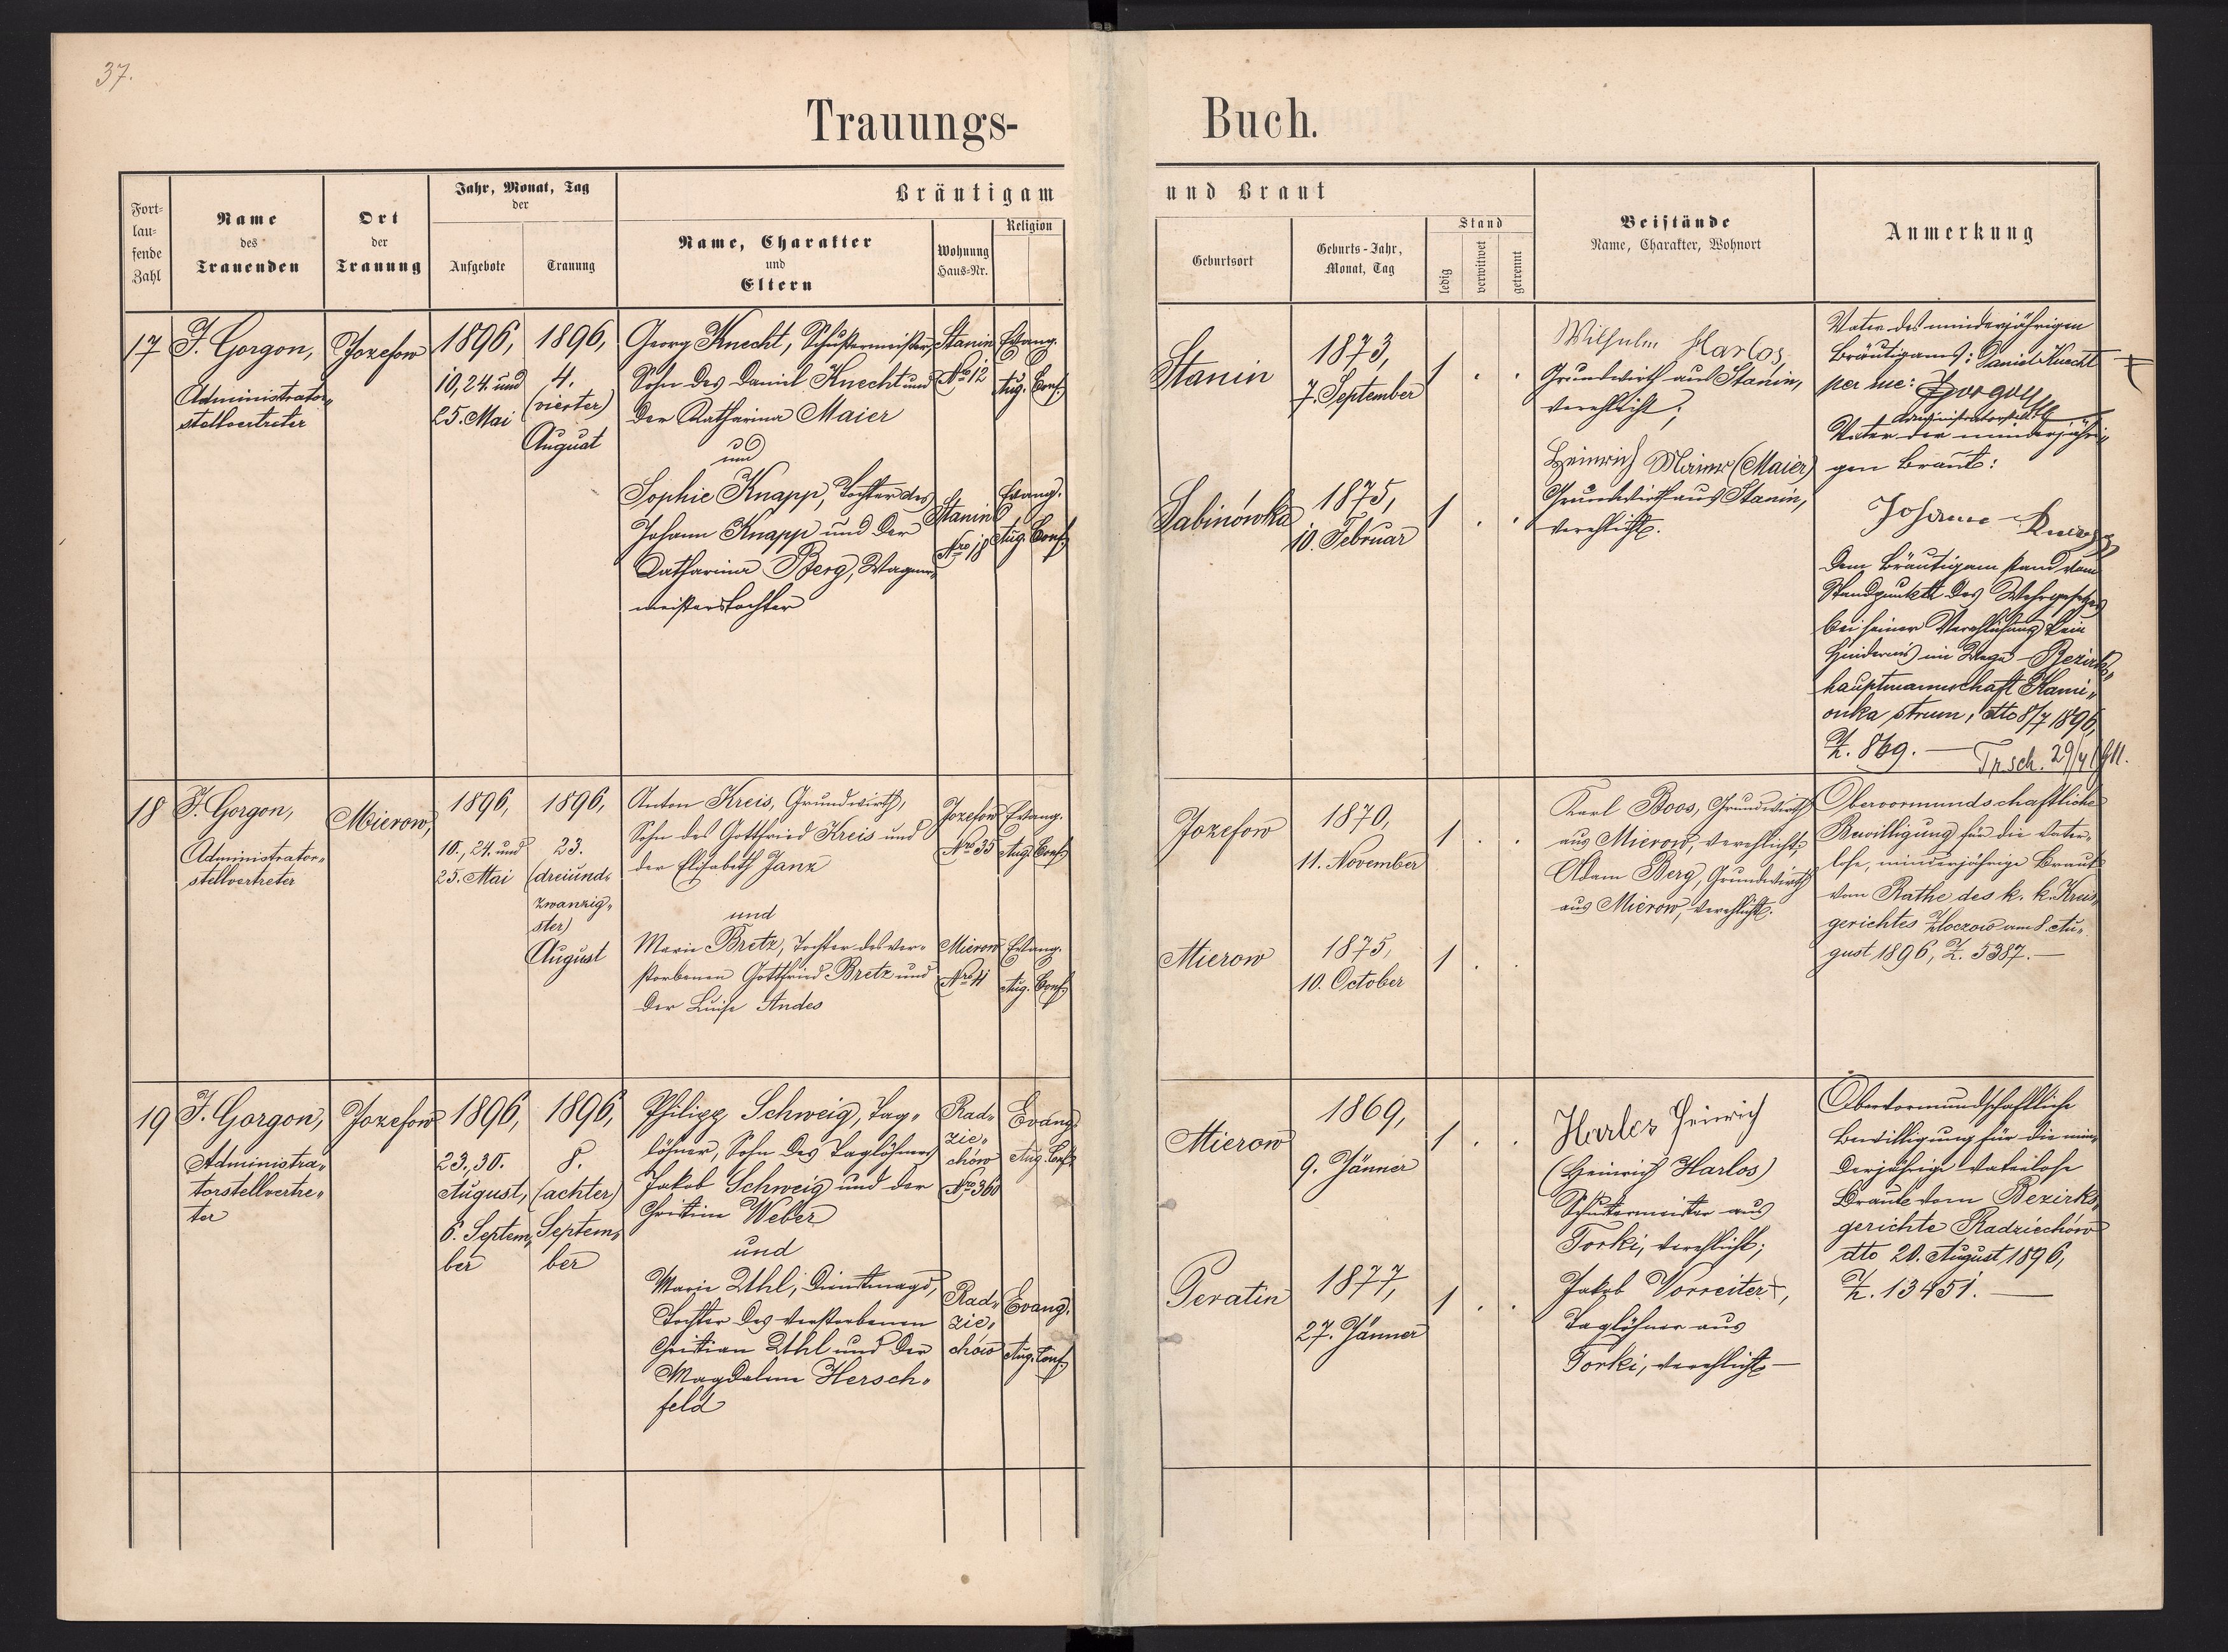 37.
Trauungs-
Buch.
Fort-
lau-
fende
Zahl
Name
des
Trauenden
Ort
der
Trauung
Jahr, Monat, Tag
der
Aufgebote
Trauung
Bräutigam
Name, Charakter
und
Eltern
Wohnung
Haus-Nr.
Religion
und Braut
Geburtsort
Geburts-Jahr,
Monat, Tag
Stand
ledig
verwitwet
getrennt
Beistände
Name, Charakter, Wohnort
Anmerkung
17
F. Gorgon,
Administrator-
stellvertreter
Jozefow
1896,
10, 24. und
25. Mai
1896,
4.
(vierter)
August
Georg Knecht, Schustermeister,
Sohn des Daniel Knecht und
der Katharina Maier
und
Sophie Knapp, Tochter des
Johann Knapp und der
Katharina Berg, Wagner-
meisterstochter
Stanin
No 12
Evang.
Aug. Conf.
Stanin
Nro 18
Evang.
Aug. Conf.
Stanin
1873,
7. September
1 . .
Sabinówka
1875,
10. Februar
1 . .
Wilhelm Harlos,
Grundwirth aus Stanin,
verehlicht;
Heinrich Maier (Maier)
Grundwirth aus Stanin,
verehlicht.
Vater des minderjährigen
Bräutigams: Daniel Knecht
per me: Gorgon
Administratorstellv.
Vater der minderjähri-
gen Braut:
Johann Knapp
Dem Bräutigam stand vom
Standpunkte des Wehrgesetzes
bei seiner Verehlichung kein
Hindernis im Wege - Bezirks-
hauptmannschaft Kami-
onka strum, dto 8/7 1896,
Z. 869. — Tr. sch. 29/4 1911.
18
F. Gorgon,
Administrator-
stellvertreter
Mierow,
1896,
10., 24. und
25. Mai
1896,
23.
(dreiund-
zwanzig-
ster)
August
Anton Kreis, Grundwirth,
Sohn des Gottfried Kreis und
der Elisabeth Janz
und
Marie Bretz, Tochter des ver-
storbenen Gottfried Bretz und
der Luise Andes
Jozefow
Nro 35
Evang.
Aug. Conf.
Mierow
Nro 41
Evang.
Aug. Conf.
Jozefow
1870,
11. November
1 . .
Mierow
1875,
10. October
1 . .
Karl Boos, Grundwirth
aus Mierow, verehlicht;
Adam Berg, Grundwirth
aus Mierow, verehlicht.
Obervormundschaftliche
Bewilligung für die vater-
lose, minderjährige Braut
vom Rathe des k. k. Kreis-
gerichtes Złoczow am 8. Au-
gust 1896, Z. 5387. —
19
F. Gorgon,
Administra-
torstellvertre-
ter
Jozefow
1896,
23., 30.
August,
6. Septem-
ber
1896,
8.
(achter)
Septem-
ber
Philipp Schweig, Tag-
löhner, Sohn des Taglöhners
Jakob Schweig und der
Christine Weber
und
Marie Uhl, Dienstmagd,
Tochter des verstorbenen
Christian Uhl und der
Magdalena Hersch-
feld
Rad-
zie-
chów
Nro 360
Evang.
Aug. Conf.
Rad-
zie-
chów
Evang.
Aug. Conf.
Mierow
1869,
9. Jänner
1 . .
Peratin
1877,
27. Jänner
1 . .
Harlos Heinrich
(Heinrich Harlos)
Schustermeister aus
Torki, verehlicht;
Jakob Vorreiter,
Taglöhner aus
Torki, verehlicht —
Obervormundschaftliche
Bewilligung für die min-
derjährige vaterlose
Braut vom Bezirks-
gerichte Radziechów
dto 20. August 1896,
Z. 13451. —